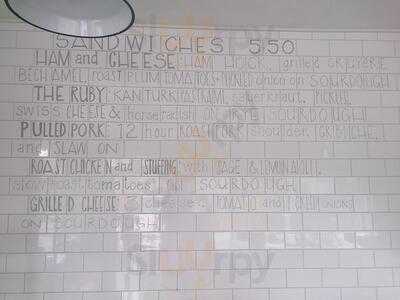 SANDWICHES 5.50
HAM and CHEESE: HAM HOCK, grilled GRUYERE
BECHAMEL, roast PLUM TOMATOES + PICKLED onion on SOURDOUGH
THE RUBY: PASTRAMI, sauerkraut, PICKLE,
SWISS CHEESE & horseradish ON RYE SOURDOUGH
PULLED PORK: 12 hour ROAST PORK shoulder,
and SLAW ON
ROAST CHICKEN and STUFFING: with SAGE & LEMON AIOLI,
slow roast tomatoes on SOURDOUGH
GRILLED CHEESE: 3 cheeses, TOMATO and ONIONS
ON SOURDOUGH
Slurrpy